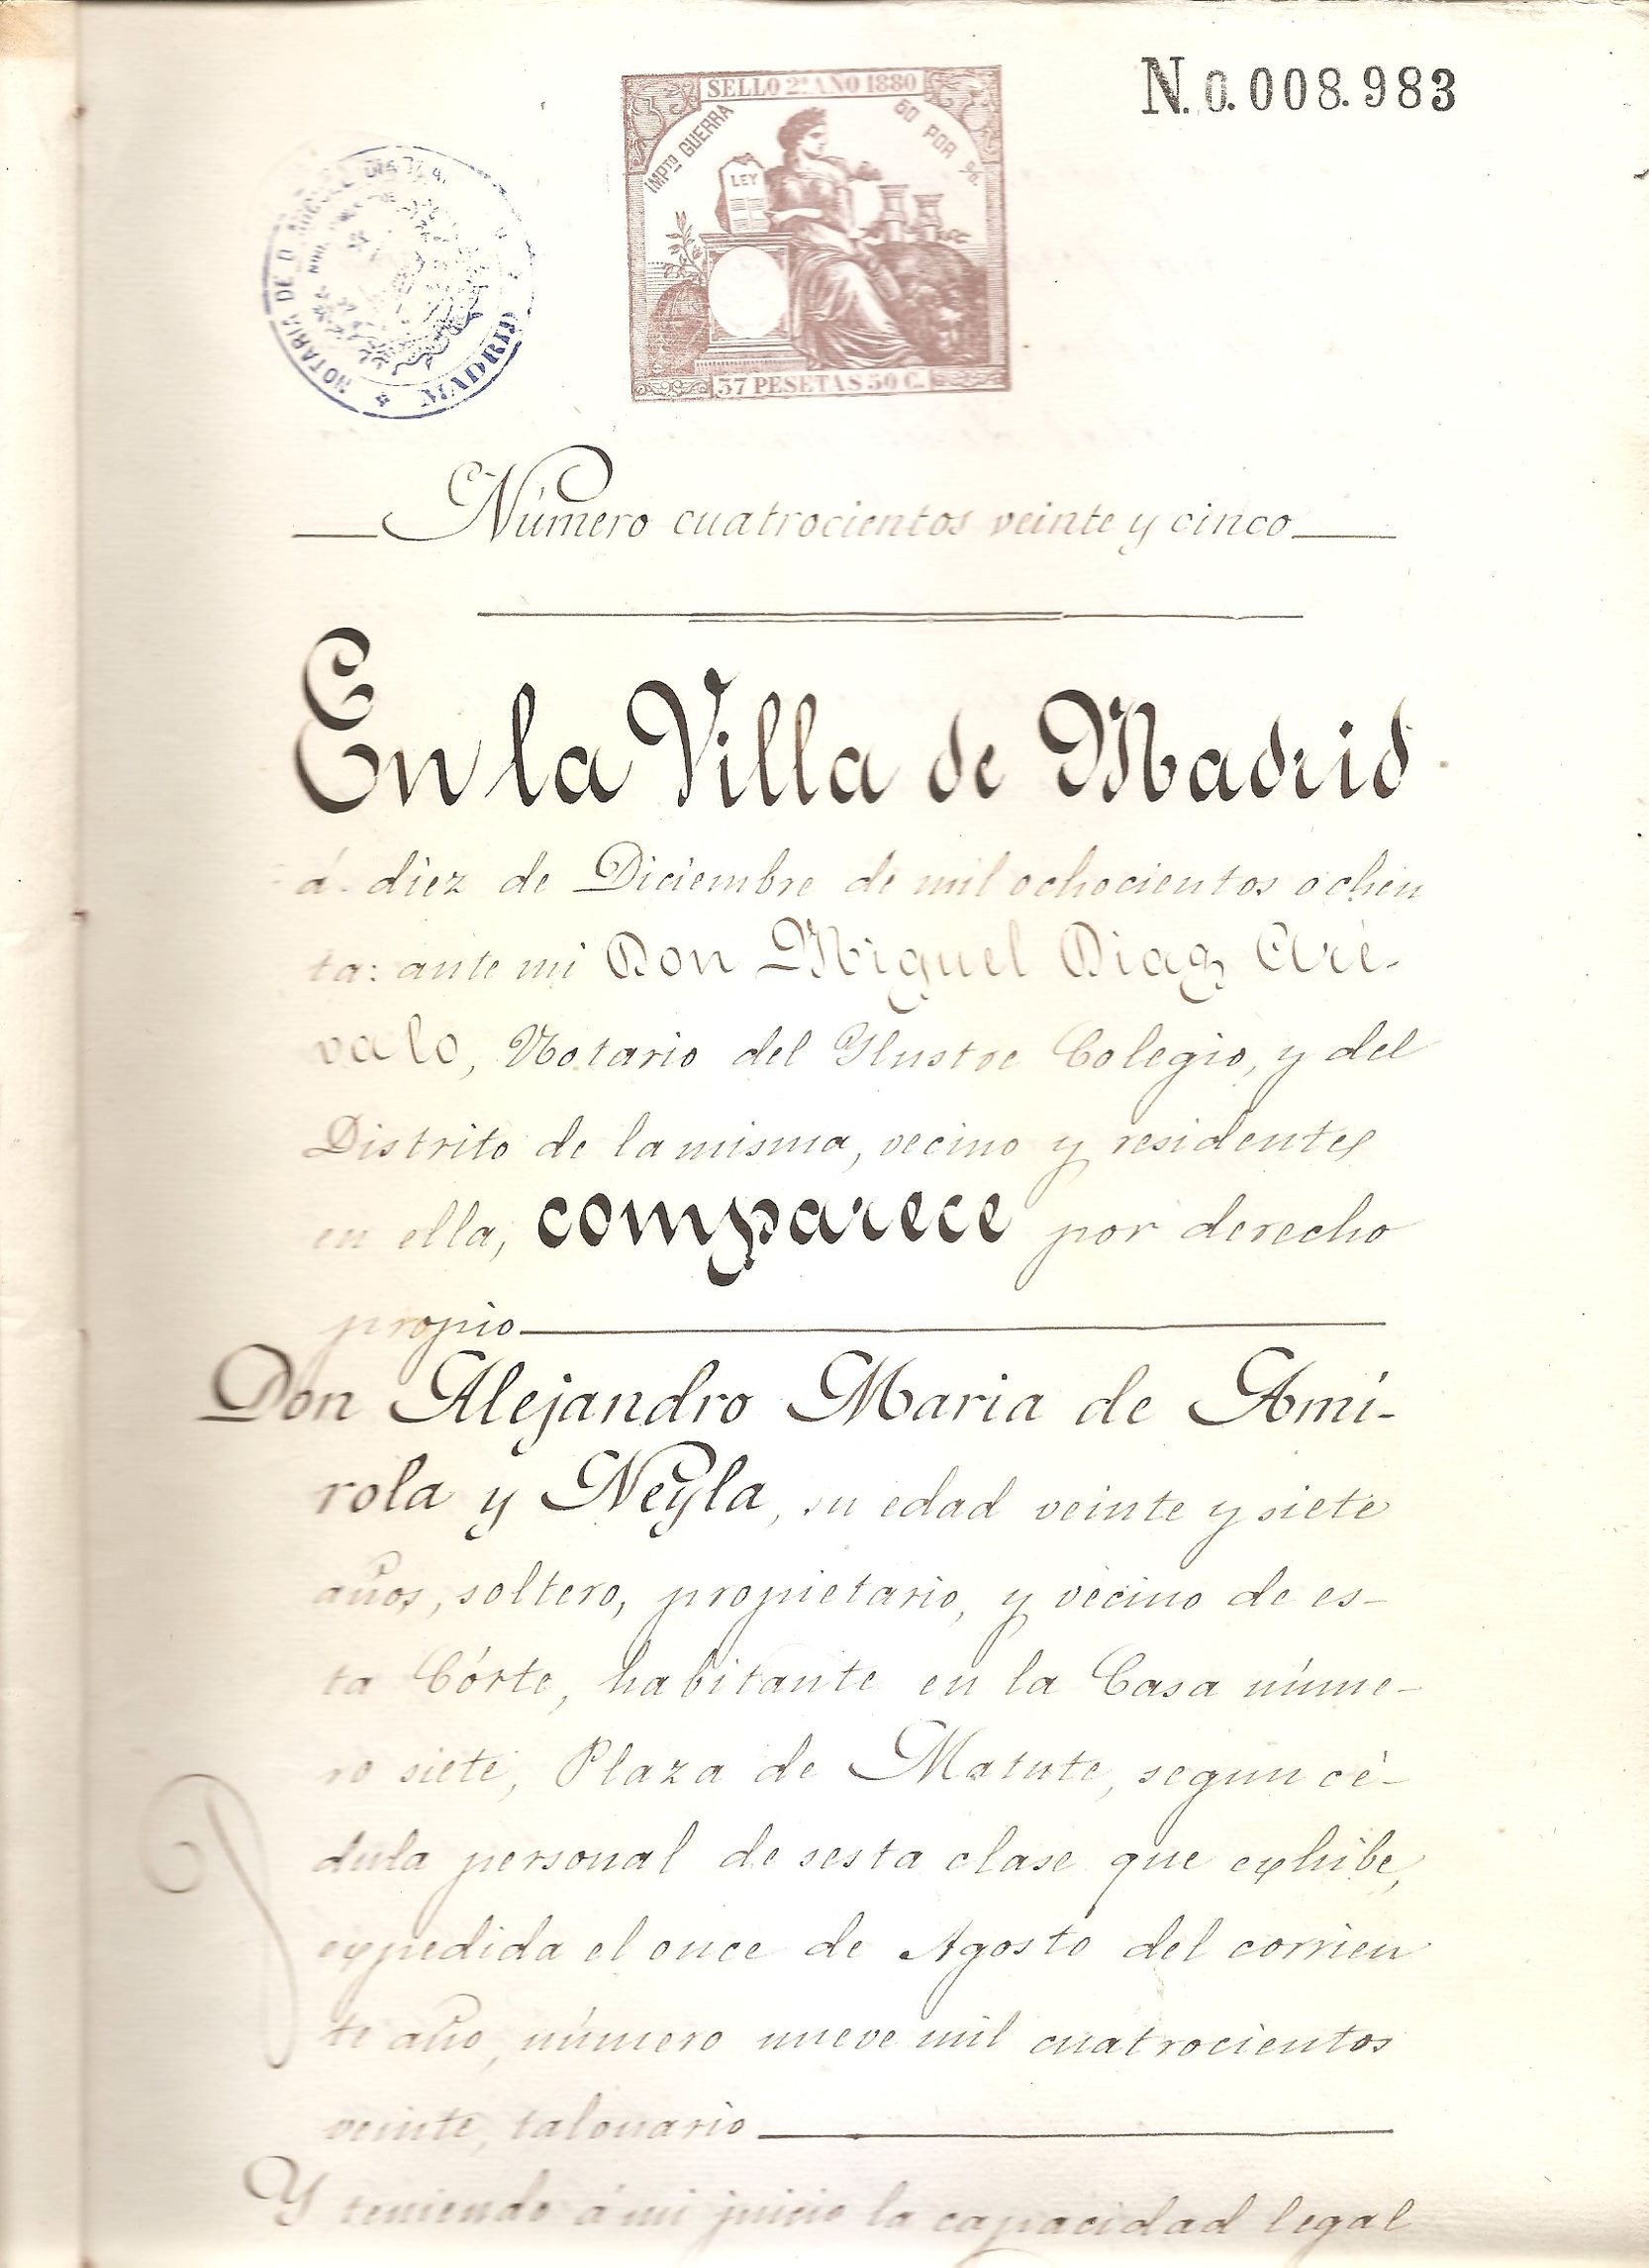 N. 0.008.983
SELLO 2º AÑO 1880
IMPTO GUERRA
50 POR %
LEY
37 PESETAS 50 C.
NOTARIA DE D. MIGUEL DIAZ
MADRID
Número cuatrocientos veinte y cinco
En la Villa de Madrid
á diez de Diciembre de mil ochocientos ochen
ta: ante mi Don Miguel Diaz Aré-
valo, Notario del Ilustre Colegio, y del
Distrito de la misma, vecino y residente
en ella, comparece por derecho
propio
Don Alejandro Maria de Ami-
rola y Neyla, su edad veinte y siete
años, soltero, propietario, y vecino de es-
ta Córte, habitante en la Casa núme-
ro siete, Plaza de Matute, segun cé-
dula personal de sesta clase que exhibe,
expedida el once de Agosto del corrien
te año, número nueve mil cuatrocientos
veinte, talonario
Y teniendo á mi juicio la capacidad legal